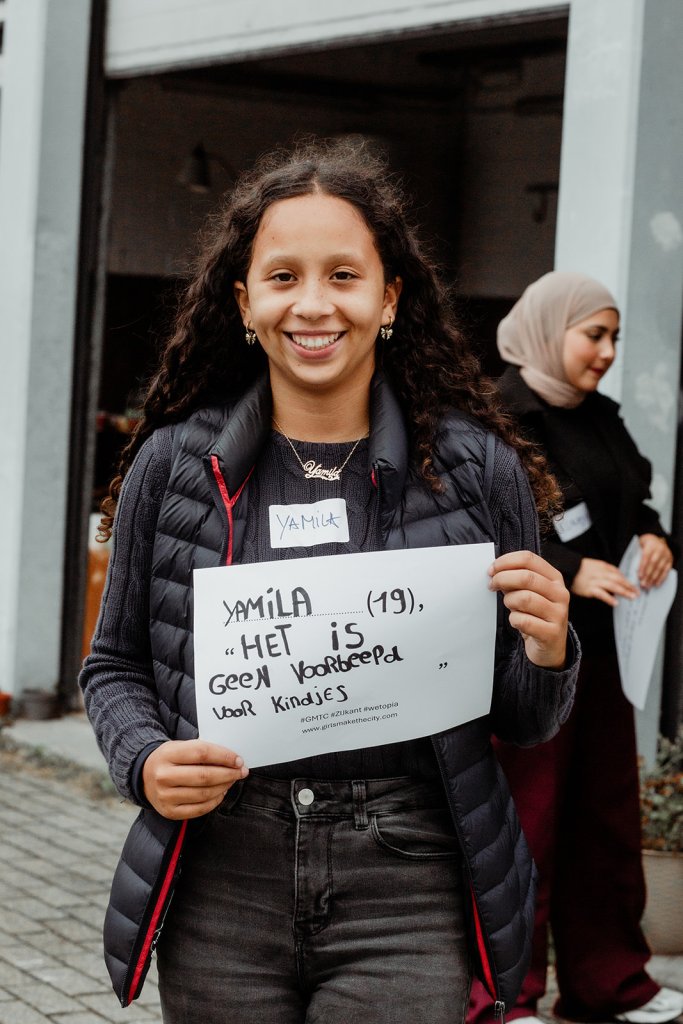 Yamila
YAMiLA
YAMiLA ............ (19),
"HET iS
GEEN VOORBEEPD
VOOR KINDJES "
#GMTC #ZIJkant #wetopia
www.girlsmakethecity.com